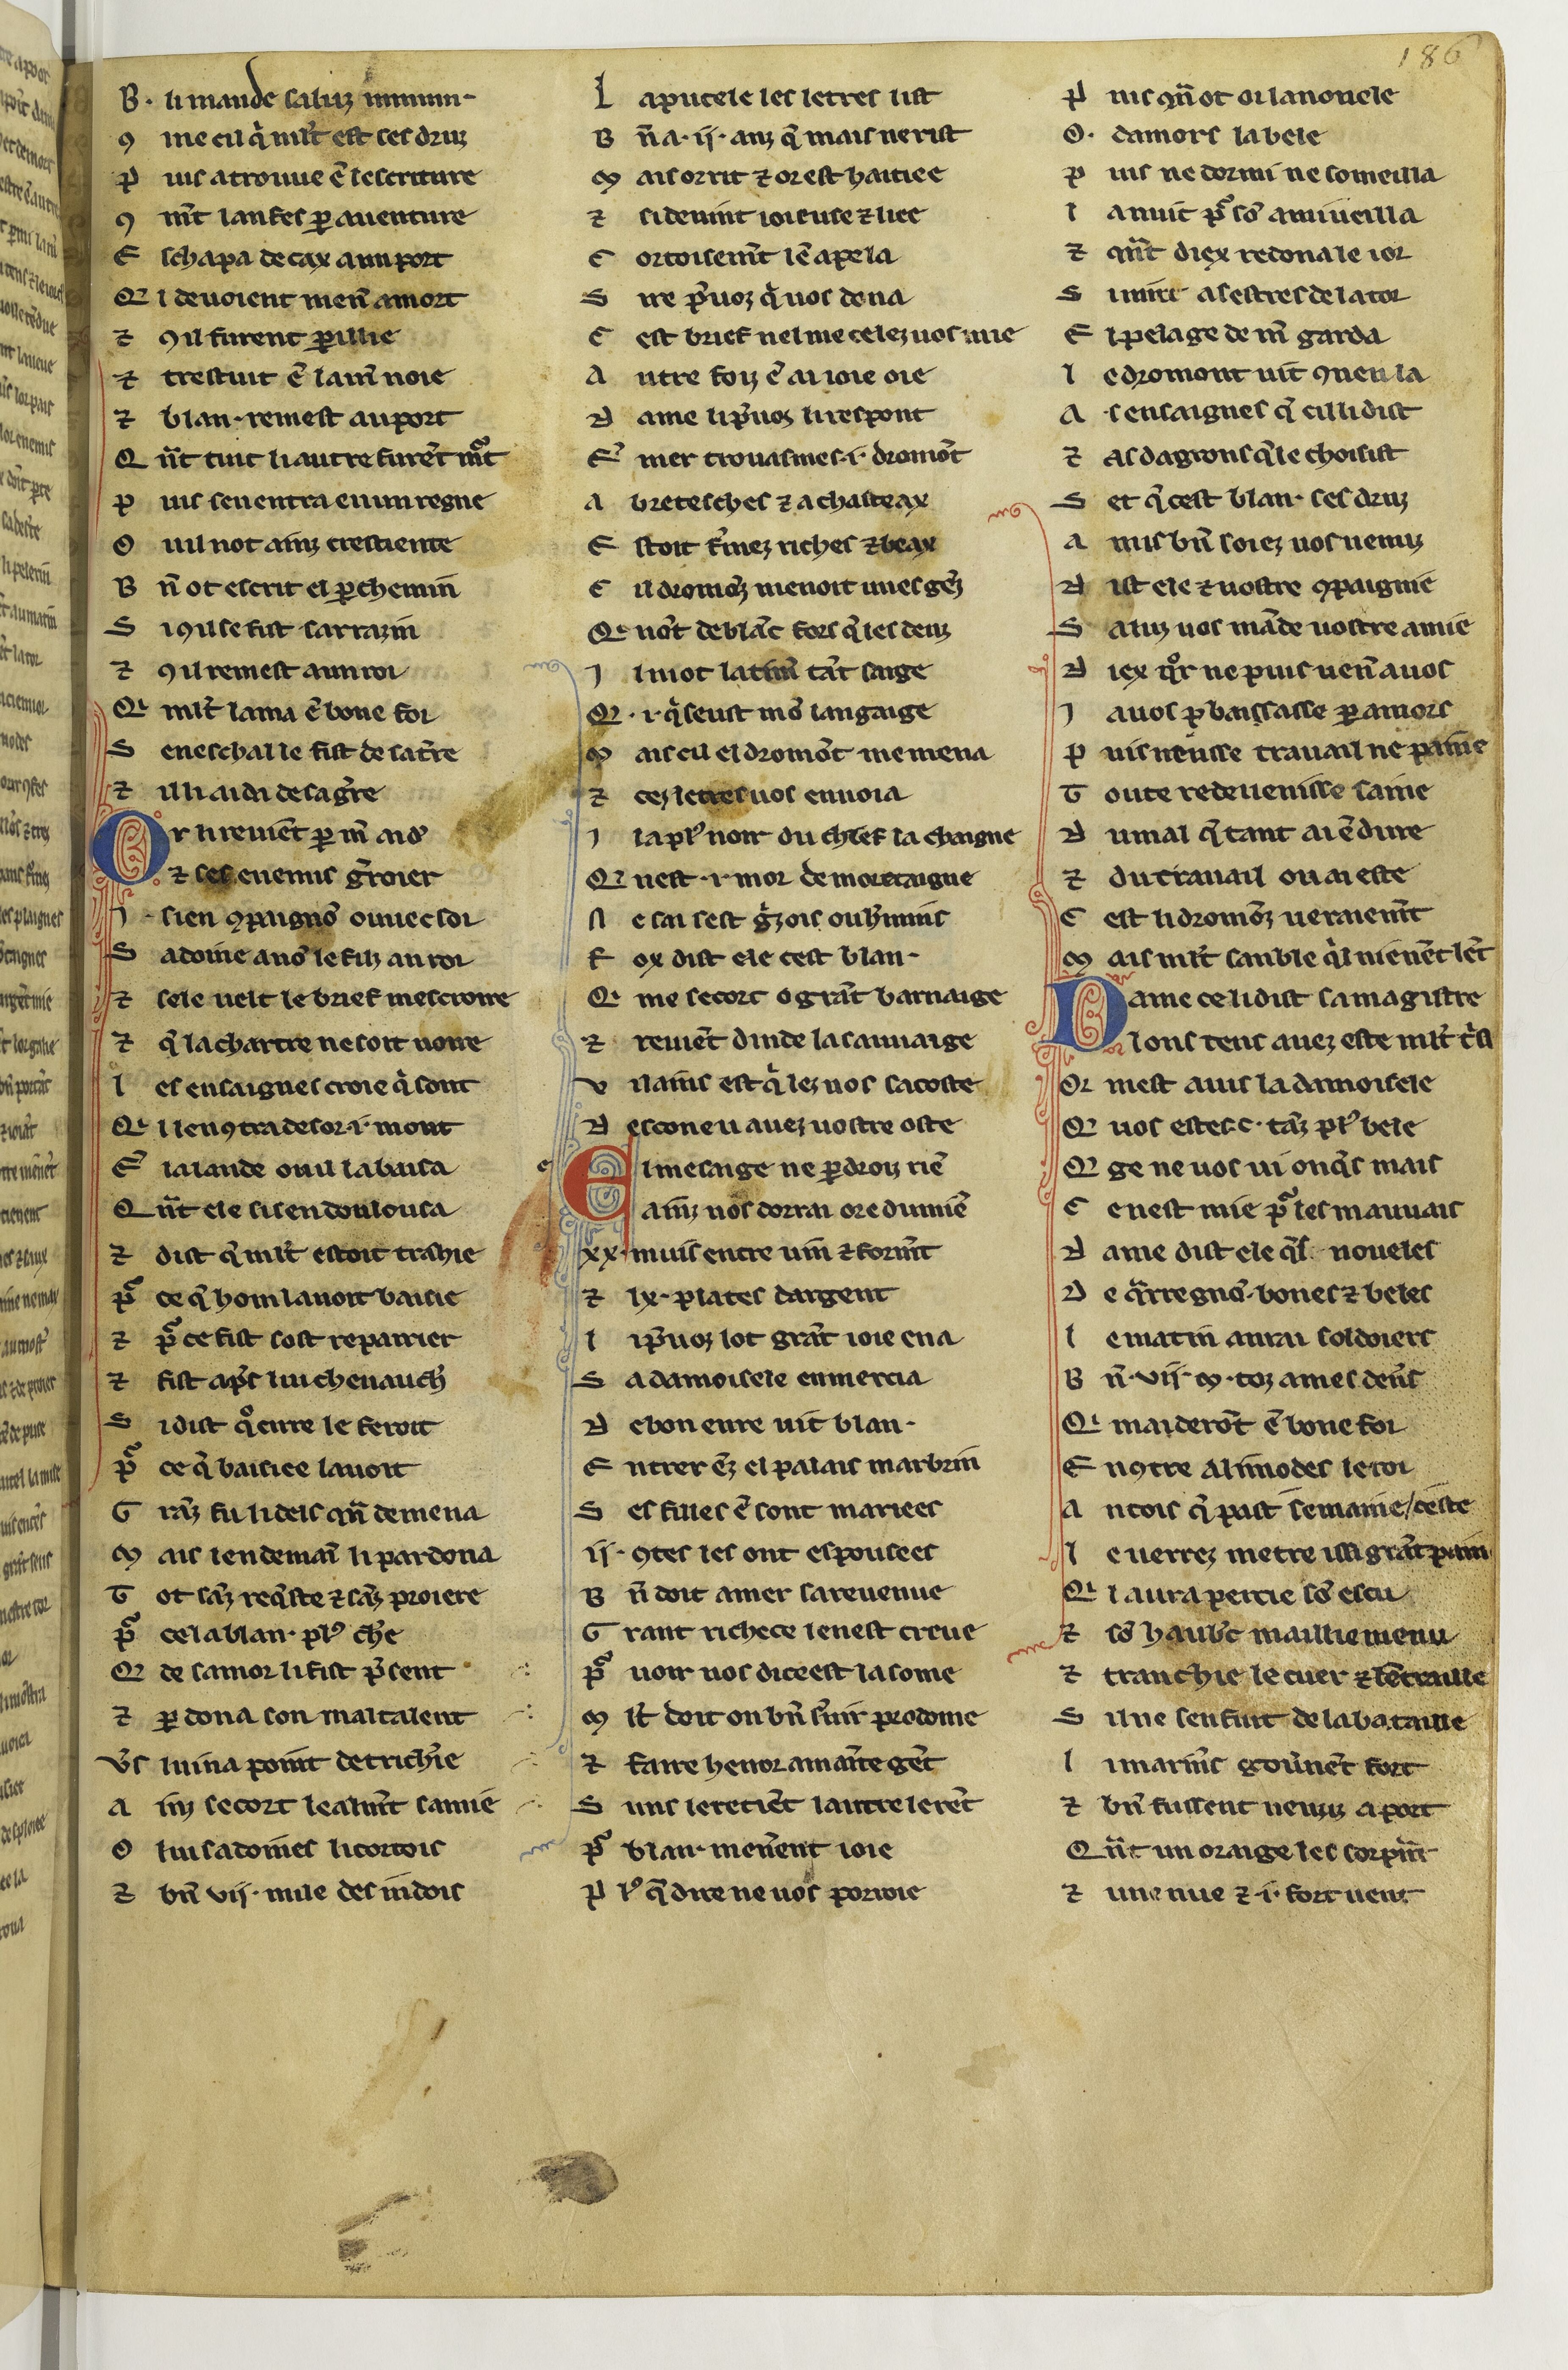 186
B· li mande saluz .......
9 me cil q̇ ml't est ses druz
P uis a trouue ē lescriture
9 mt̄ lanfes ꝑ auenture
E schapa de cax a un port
Q i deuoient menr̄ a mort
⁊ 9 il furent ꝑillie
⁊ trestuit ē la mr̄ noie
⁊ blan· remest au port
Q n̄t tuit li autre furēt mort
P uis sen entra en un regne
O u il not ainz crestiente
B n̄ ot escrit el ꝑchemin
S i 9 il se fist sarrazin
⁊ 9 il remest au roi
Q i ml't lama ē bone foi
S eneschal le fist de sa t̄re
⁊ il li aida de sa gr̄e
O r li reuiēt ꝑ mr̄ aid'
⁊ ses enemis gr̄oier
I · sien 9paignō ouuec soi
S adoine a nō le filz au roi
⁊ sele uelt le brief mescroire
⁊ q̄ la chartre ne soit uoire
L es ensaignes croie q̇ sont
Q il len9tra desor ·i· mont
E' la lande ou il la baisa
Q n̄t ele si sen doulousa
⁊ dist q̄ ml't estoit trahie
P' ce q̄ hom lauoit baisie
⁊ p' ce fist tost repairier
⁊ fist apr̄s lui cheuauch'
S i dist q̊ cure le feroit
P' ce q̄ baisiee lauoit
G rāz fu li dels qn̄ demena
M ais lendemaī li pardona
T ot sāz req̄ste ⁊ sāz proiere
P' cela blan· pl' ch'e
Q de samor li fist pr̄sent
⁊ ꝑdona son maltalent
V's lui na point de trich'ie
A inz secort lealmt̄ samie
O lui sadoines li cortois
⁊ bn̄ vij· mile des indois
L a pucele les letres list
B n̄ a ·ij· anz q̄ mais ne rist
M ais or rit ⁊ or est haitiee
⁊ si deuint ioieuse ⁊ liee
C ortoisemt̄ lē apela
S ire p'uoz q̇ uos dona
C est brief nel me celez uos mie
A utre foiz ē ai ioie oie
D ame li p'uoz li respont
E' mer trouasmes ·i· dromōt
A bretesches ⁊ a chasteax
E stoit f'mez riches ⁊ beax
C il dromōz menoit unes gēz
Q i nōt de blāc fors q̄ les denz
I l niot latini tāt saige
Q ·i· q̇ seust mō langaige
M ais cil el dromōt me mena
⁊ cez letres uos enuoia
I la pl' noir du chief la chaigne
Q nest ·i· mor de moretaigne
N e sai sest g'zois ou h'minis
F ox dist ele cest blan·
Q i me secors o grāt barnaige
⁊ reuiēt dinde la sauuaige
V ilains est q̇ lez uos sacoste
D esconeu auez uostre oste
C il mesaige ne ꝑdroiz riē
A ainz uos dorrai ore du miē
xx· muis entre uin ⁊ formt̄
⁊ lx· plates dargent
L i p'uoz lot grāt ioie en a
S a damoisele en mercia
D e bon eure uit blan·
E ntrer ēz el palais marbrin
S es filles ē sont mariees
ij· 9tes les ont espousees
B n̄ doit amer sa reuenue
G rant richece len est creue
P' uoir uos di ce est la some
M l't doit on bn̄ s'uir prodome
⁊ faire henor a mainte gēt
S uns le retiēt lautre le rēt
P' blan· mein̄ent ioie
P l' q̄ dire ne uos porroie
P uis qn̄ ot oi la nouele
O· damors la bele
P uis ne dormi ne someilla
L a nuit p' sō ami ueilla
⁊ qn̄t diex redona le ior
S i uint as estres de la tor
E l pelage de mr̄ garda
L e dromont uit 9 uen la
A s ensaignes q̄ cil li dist
⁊ as dagrons q̄ le choisist
S et q̄ cest blan· ses druz
A mis bn̄ soiez uos uenuz
D ist ele ⁊ uostre 9paignie
S aluz uos māde uostre amie
D iex q̊r ne puis uenr̄ a uos
I a uos p' baisasse ꝑ amors
P uis neusse trauail ne paine
T oute redeuenisse saine
D u mal q̄ tant ai ēdure
⁊ du trauail ou ai este
C est li dromōz ueraiemt̄
M ais ml't sanble q̇l uienēt lēt
D ame ce li dist sa magistre
L onc tens auez este ml't t'ste
Or mest auis la damoisele
Q uos estes ·c· tāz pl' bele
Q ge ne uos ui onq̄s mais
C e nest mie p' les mauuais
D ame dist ele q̄s noueles
D e q̄rre gnō· bones ⁊ beles
L e matin aurai soldoiers
B n̄ ·vij· ·m· toz a mes den̄s
Q i maideront ē bone foi
E n9tre alimodes le roi
A ncois q̄ past semaine / ceste
L e uerrez metre issi grāt pain
Q il aura percie sō escu
⁊ sō haub'c maillie menu
⁊ tranchie le cuer ⁊ lētraille
S il ne sen fuit de la bataille
L i marin̄s gou'nēt fort
⁊ bn̄ fussent uenuz a port
Q n̄t un oraige les sorprīt
⁊ une nue ⁊ ·i· fort uent